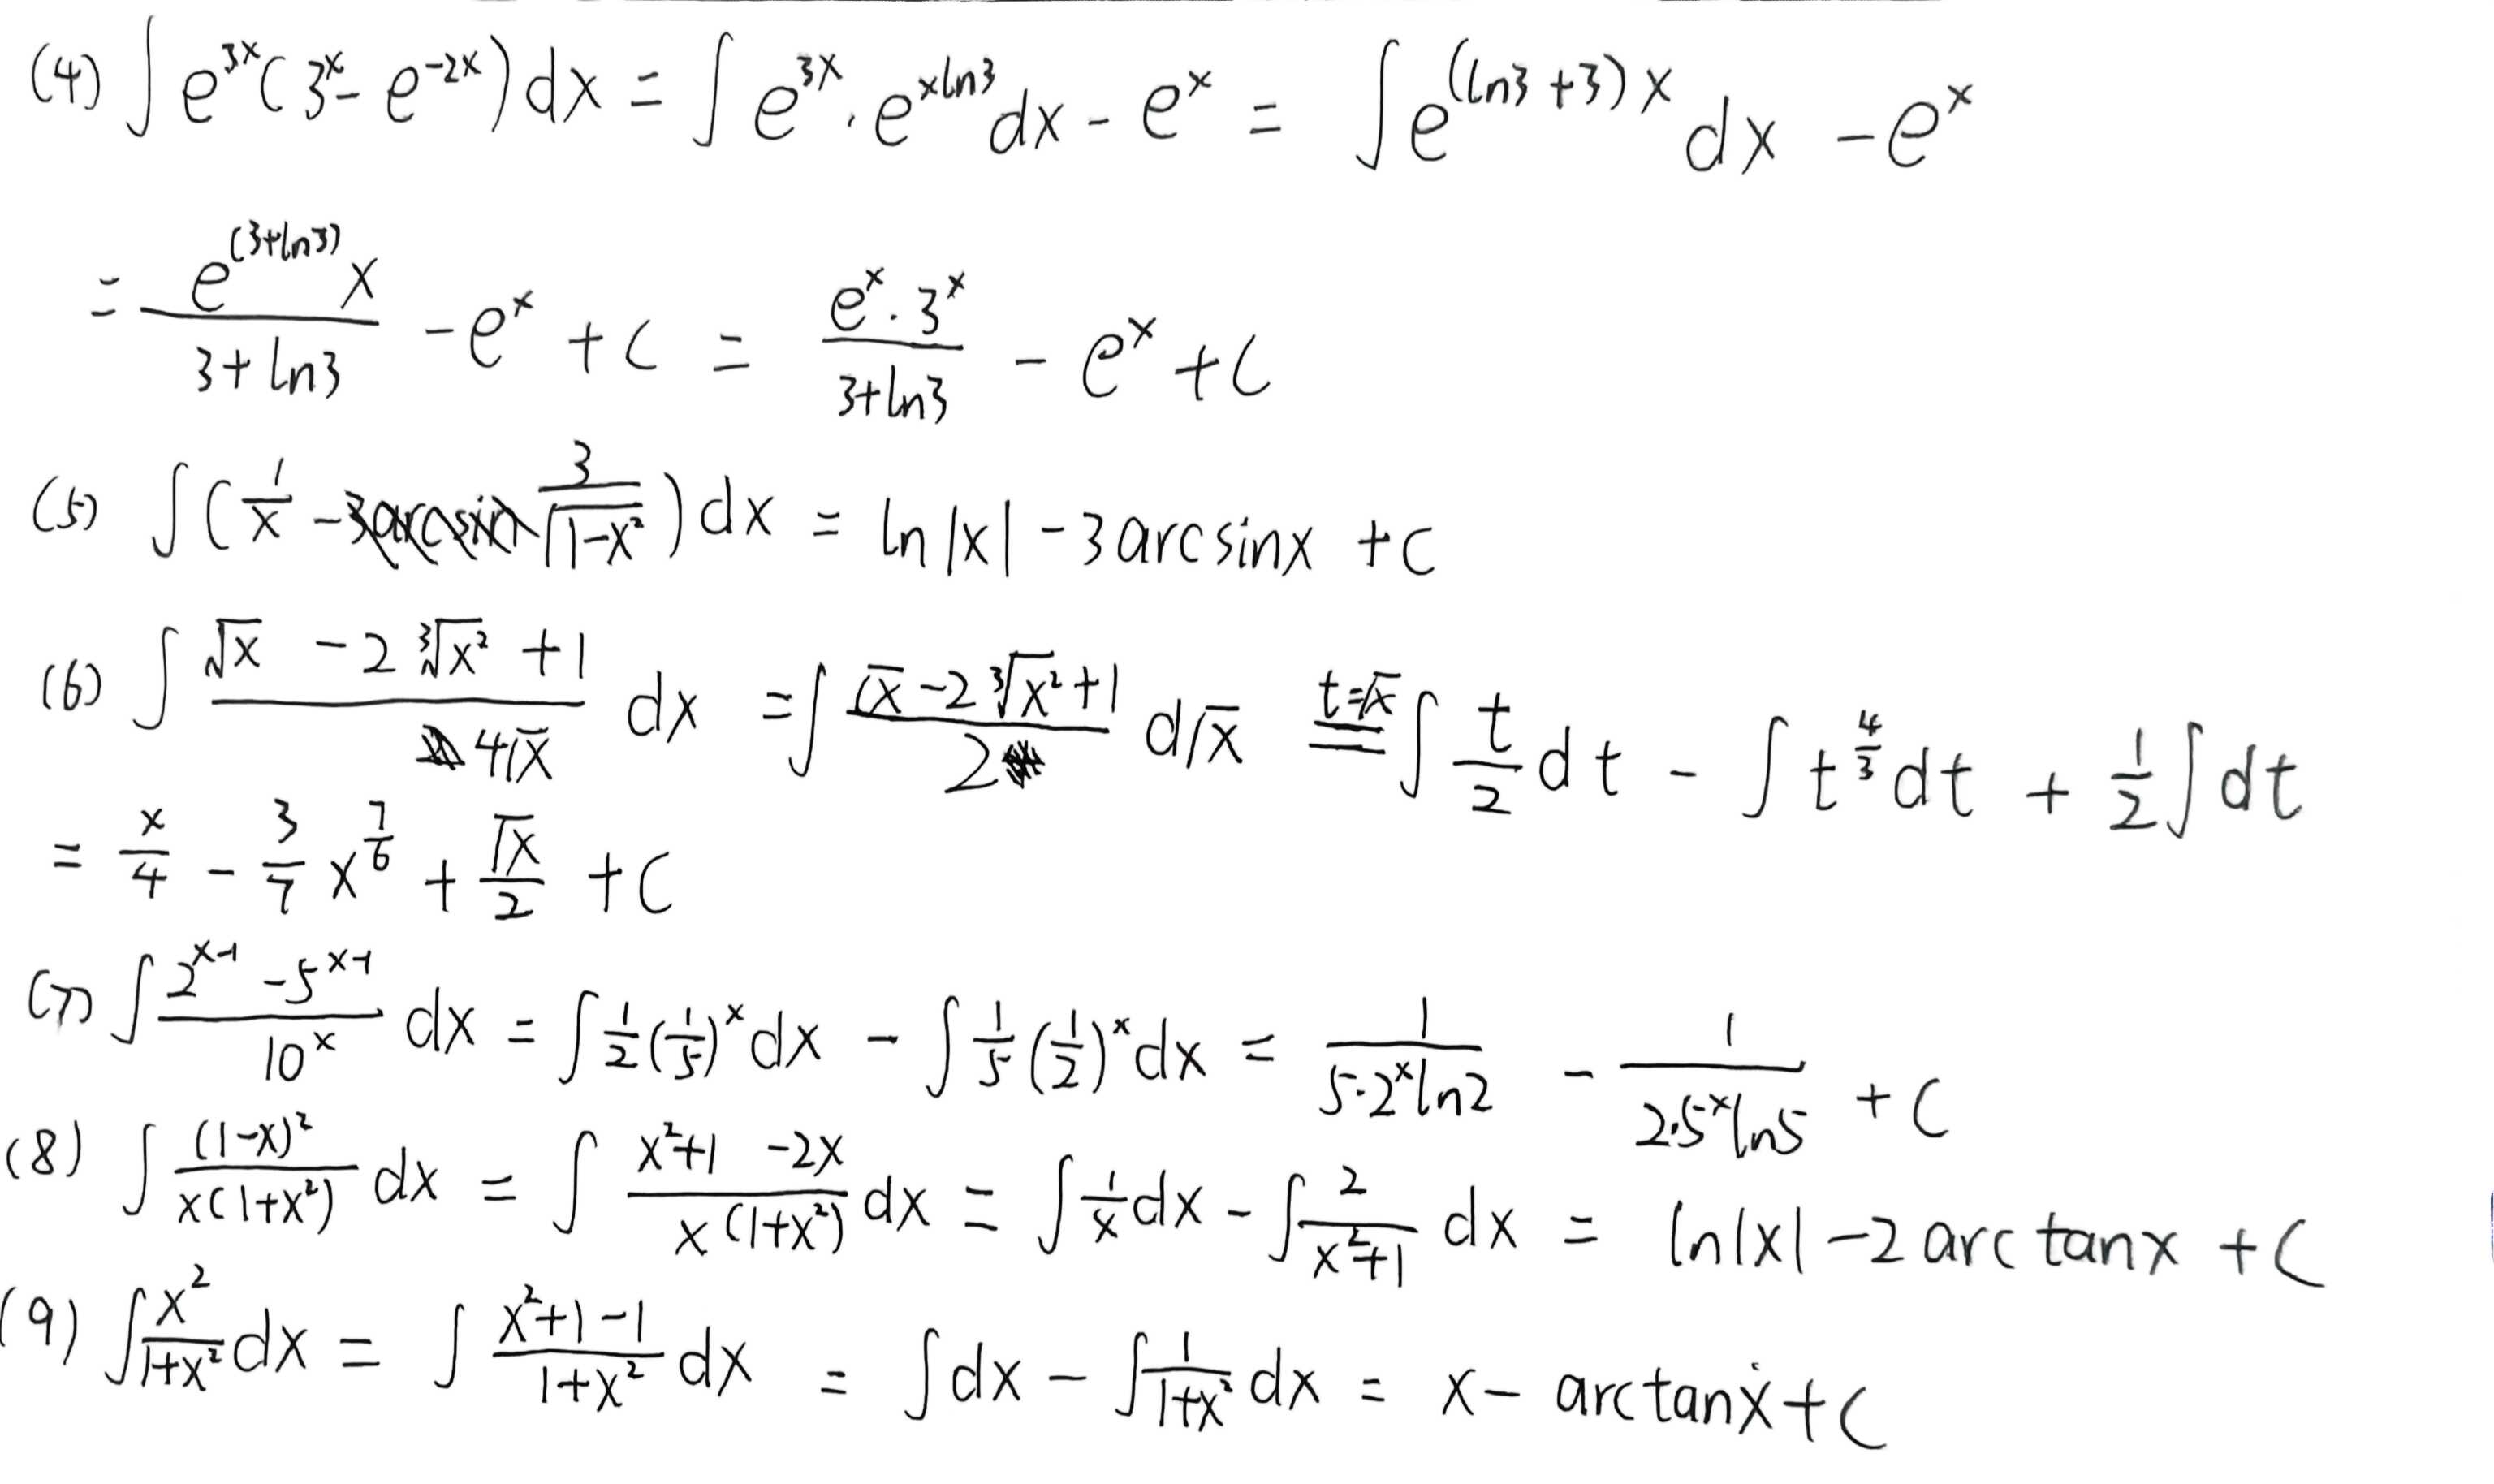 (4) ∫ e^{3x}(3^x - e^{-2x}) dx = ∫ e^{3x} · e^{xln3} dx - e^x = ∫ e^{(ln3+3)x} dx - e^x
= \frac{e^{(3+ln3)}x}{3+ln3} - e^x + C = \frac{e^x · 3^x}{3+ln3} - e^x + C
(5) ∫ (\frac{1}{x} - \frac{3}{\sqrt{1-x^2}}) dx = ln|x| - 3arcsinx + C
(6) ∫ \frac{\sqrt{x} - 2\sqrt[3]{x^2} + 1}{4\sqrt{x}} dx = ∫ \frac{\sqrt{x} - 2\sqrt[3]{x^2} + 1}{2} d\sqrt{x} \overset{t=\sqrt{x}}{=} ∫ \frac{t}{2} dt - ∫ t^{\frac{4}{3}} dt + \frac{1}{2} ∫ dt
= \frac{x}{4} - \frac{3}{7} x^{\frac{7}{6}} + \frac{\sqrt{x}}{2} + C
(7) ∫ \frac{2^{x-1} - 5^{x-1}}{10^x} dx = ∫ \frac{1}{2}(\frac{1}{5})^x dx - ∫ \frac{1}{5}(\frac{1}{2})^x dx = \frac{1}{5·2^x ln2} - \frac{1}{2·5^x ln5} + C
(8) ∫ \frac{(1-x)^2}{x(1+x^2)} dx = ∫ \frac{x^2+1-2x}{x(1+x^2)} dx = ∫ \frac{1}{x} dx - ∫ \frac{2}{x^2+1} dx = ln|x| - 2arctanx + C
(9) ∫ \frac{x^2}{1+x^2} dx = ∫ \frac{x^2+1-1}{1+x^2} dx = ∫ dx - ∫ \frac{1}{1+x^2} dx = x - arctanx + C